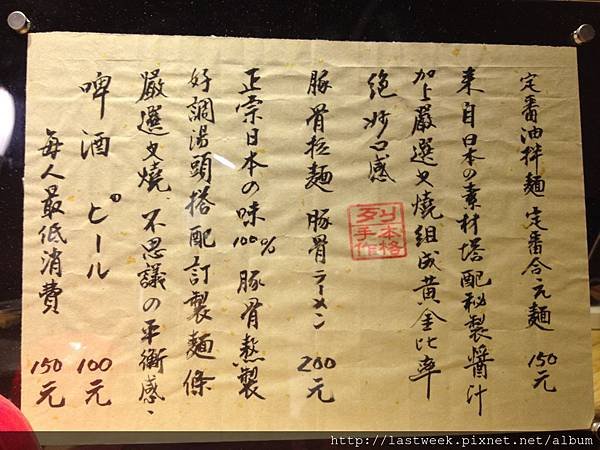 定番油拌麵 定番合え麺 150元
来自日本の素材搭配秘製醬汁
加上嚴選叉燒組成黃金比率
絕妙口感
豚骨拉麵 豚骨ラーメン 200元
正宗日本の味 100% 豚骨熬製
好調湯頭搭配訂製麵條
嚴選叉燒 不思議の平衡感、
啤酒 ビール 100元
每人最低消費 150元
本格
手作
http://lastweek.pixnet.net/album